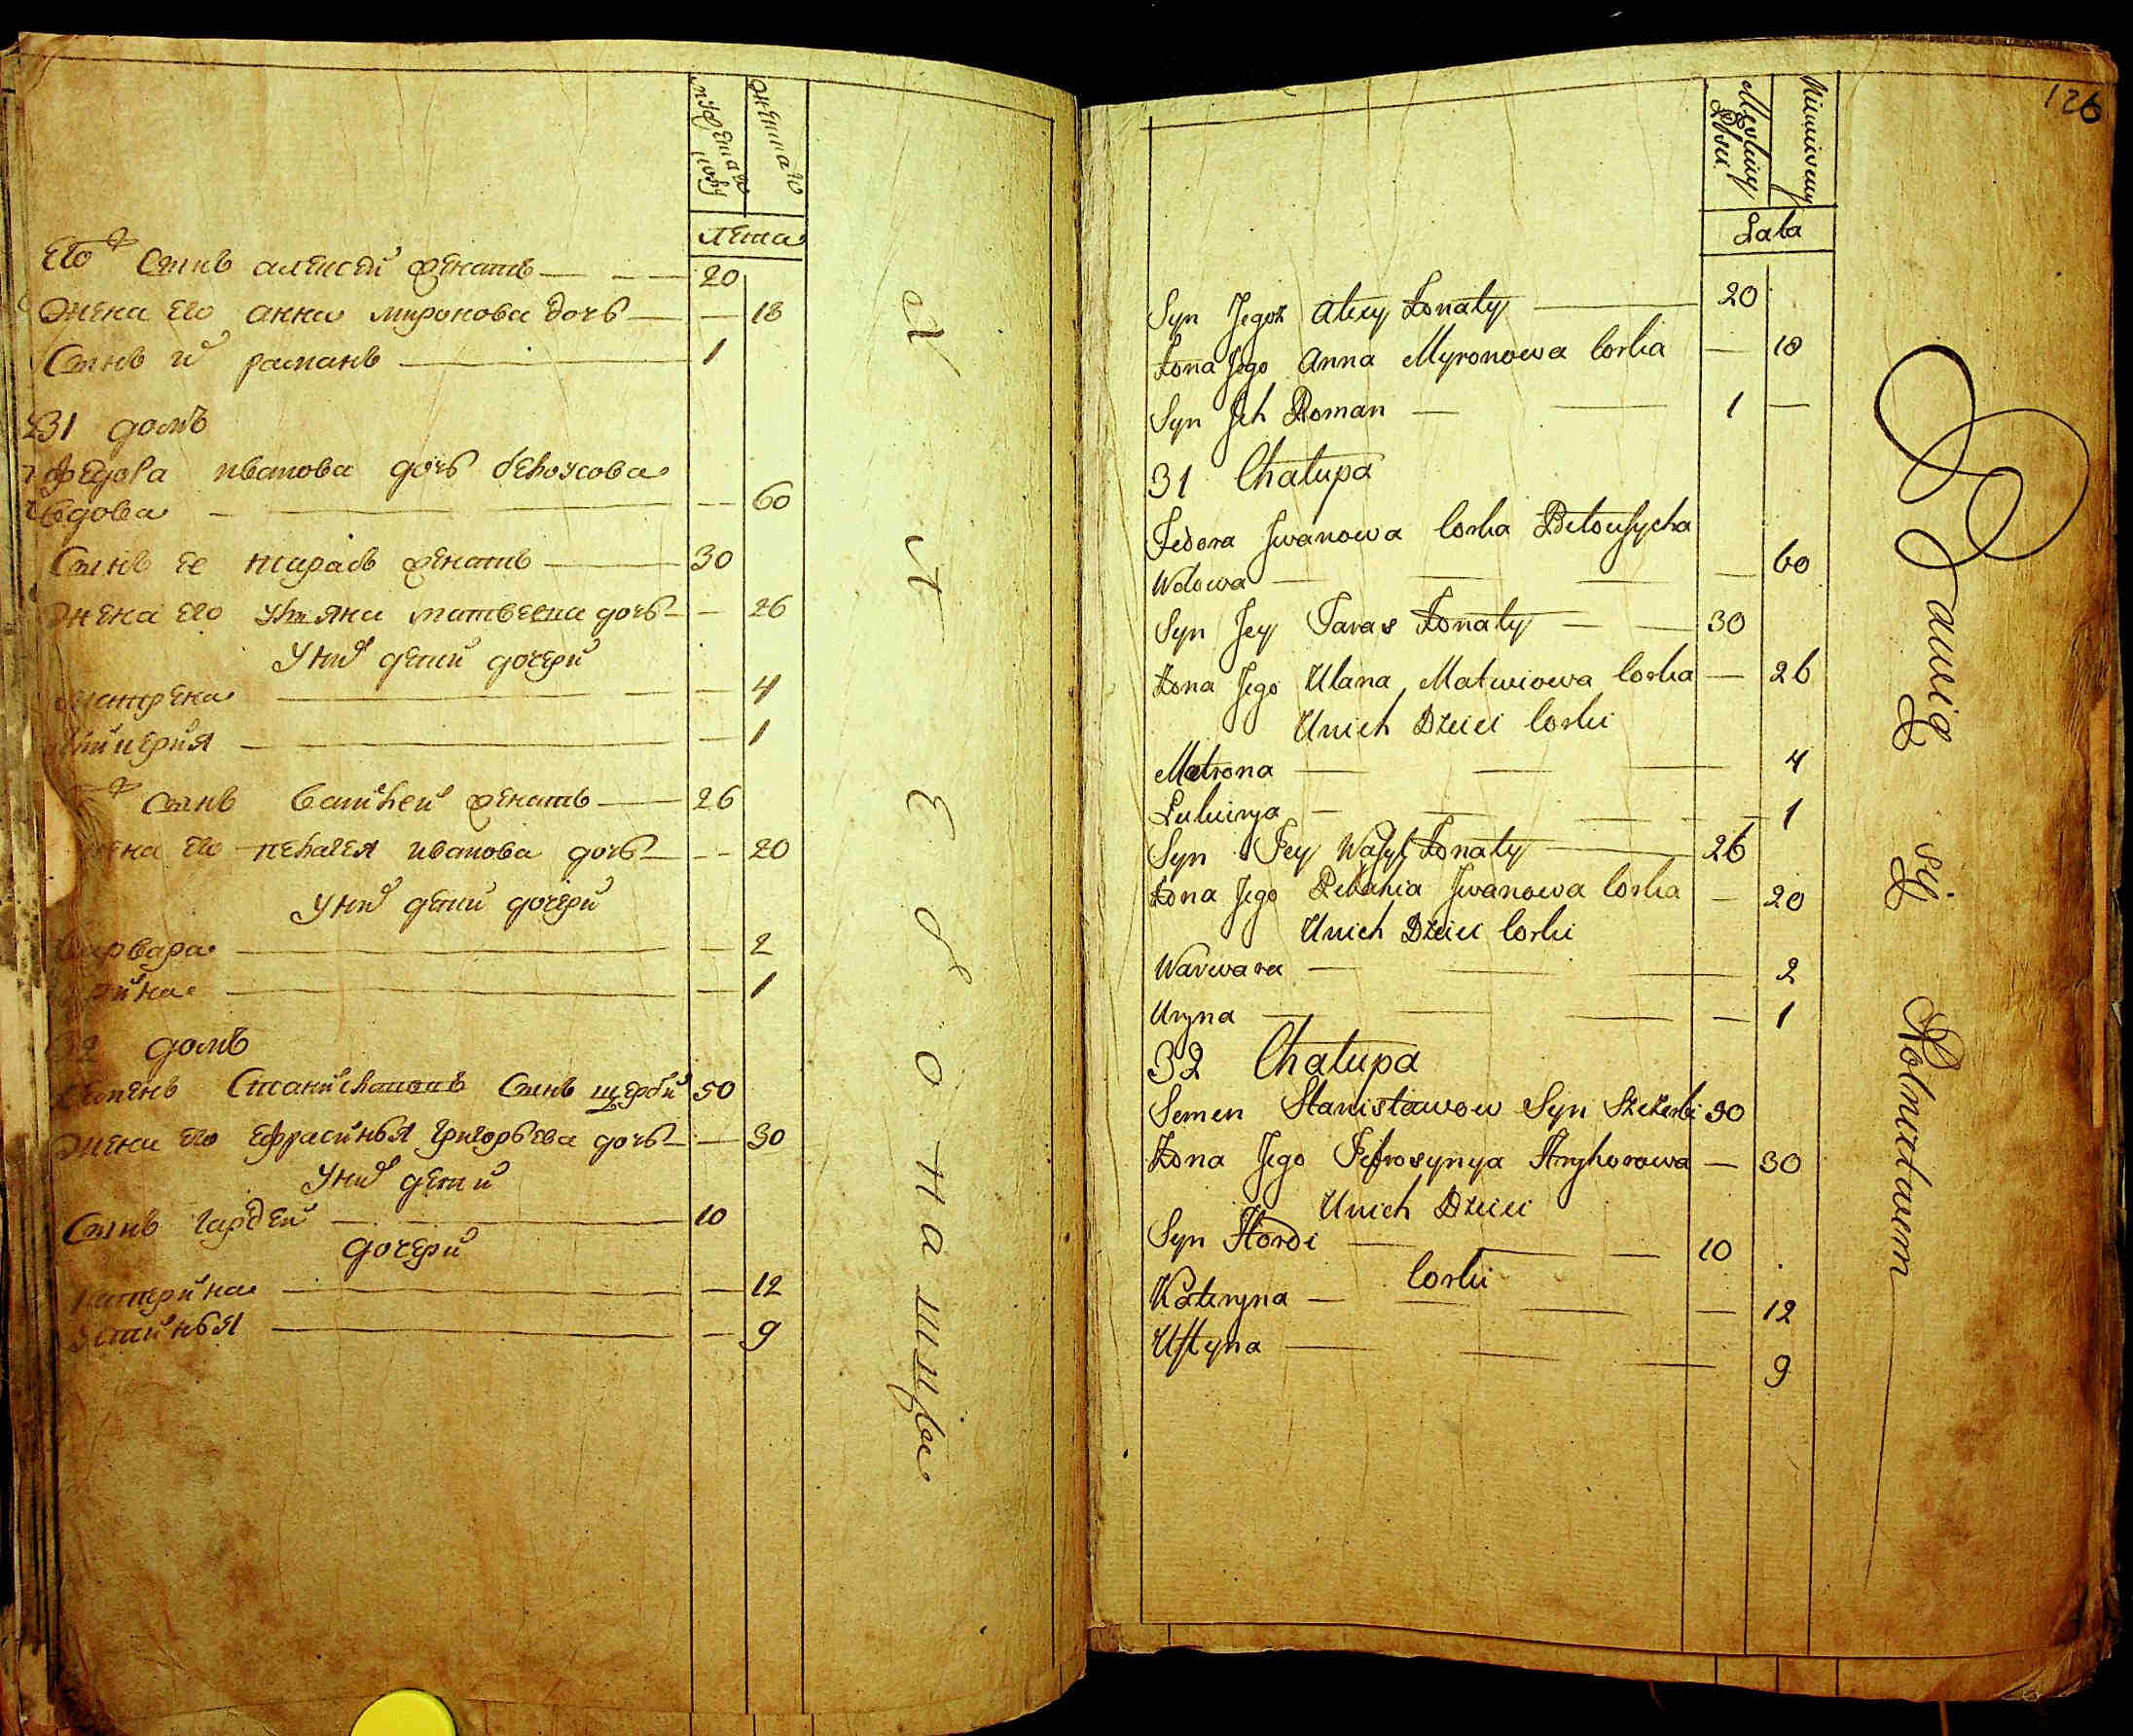 мужеска полу
женска
Лета
Его ж Сынъ алексей женатъ 20
жена Его анна миронова дочь 18
Сынъ их раманъ 1
31 домъ
федора иванова дочь белоусова
вдова 60
Сынъ Ее тарасъ женатъ 30
жена Его ульяна матвеева дочь 26
У них дети дочери
матрена 4
1
ж Сынъ василей женатъ 26
жена Его пелагея иванова дочь 20
У них дети дочери
варвара 2
1
32 домъ
Семенъ Станиславовъ Сынъ щерби 50
жена Его Ефрасинья григорьева дочь 30
У них дети
Сынъ гардей 10
дочери
катерина 12
устинья 9
126
Męskiey Płci
Niewieściey
Lata
Syn Jegoż Alexy Żonaty 20
Żona Jego Anna Myronowa Corka 18
Syn Jch Roman 1
31 Chałupa
Fedora Jwanowa Corka Biłousycha
Wdowa 60
Syn Jey Taras Żonaty 30
Żona Jego Ulana Matwiowa Corka 26
Unich Dzieci Corki
Matrona 4
1
Syn Jey Wasyl Żonaty 26
Żona Jego Pelahia Jwanowa Corka 20
Unich Dzieci Corki
Warwara 2
Uryna 1
32 Chałupa
Semen Stanisławow Syn 50
Żona Jego Jefrosynya Hryhorowa 30
Unich Dzieci
Syn Hordi 10
Corki
Kateryna 12
Ustyna 9
Bawią się Rolnictwem